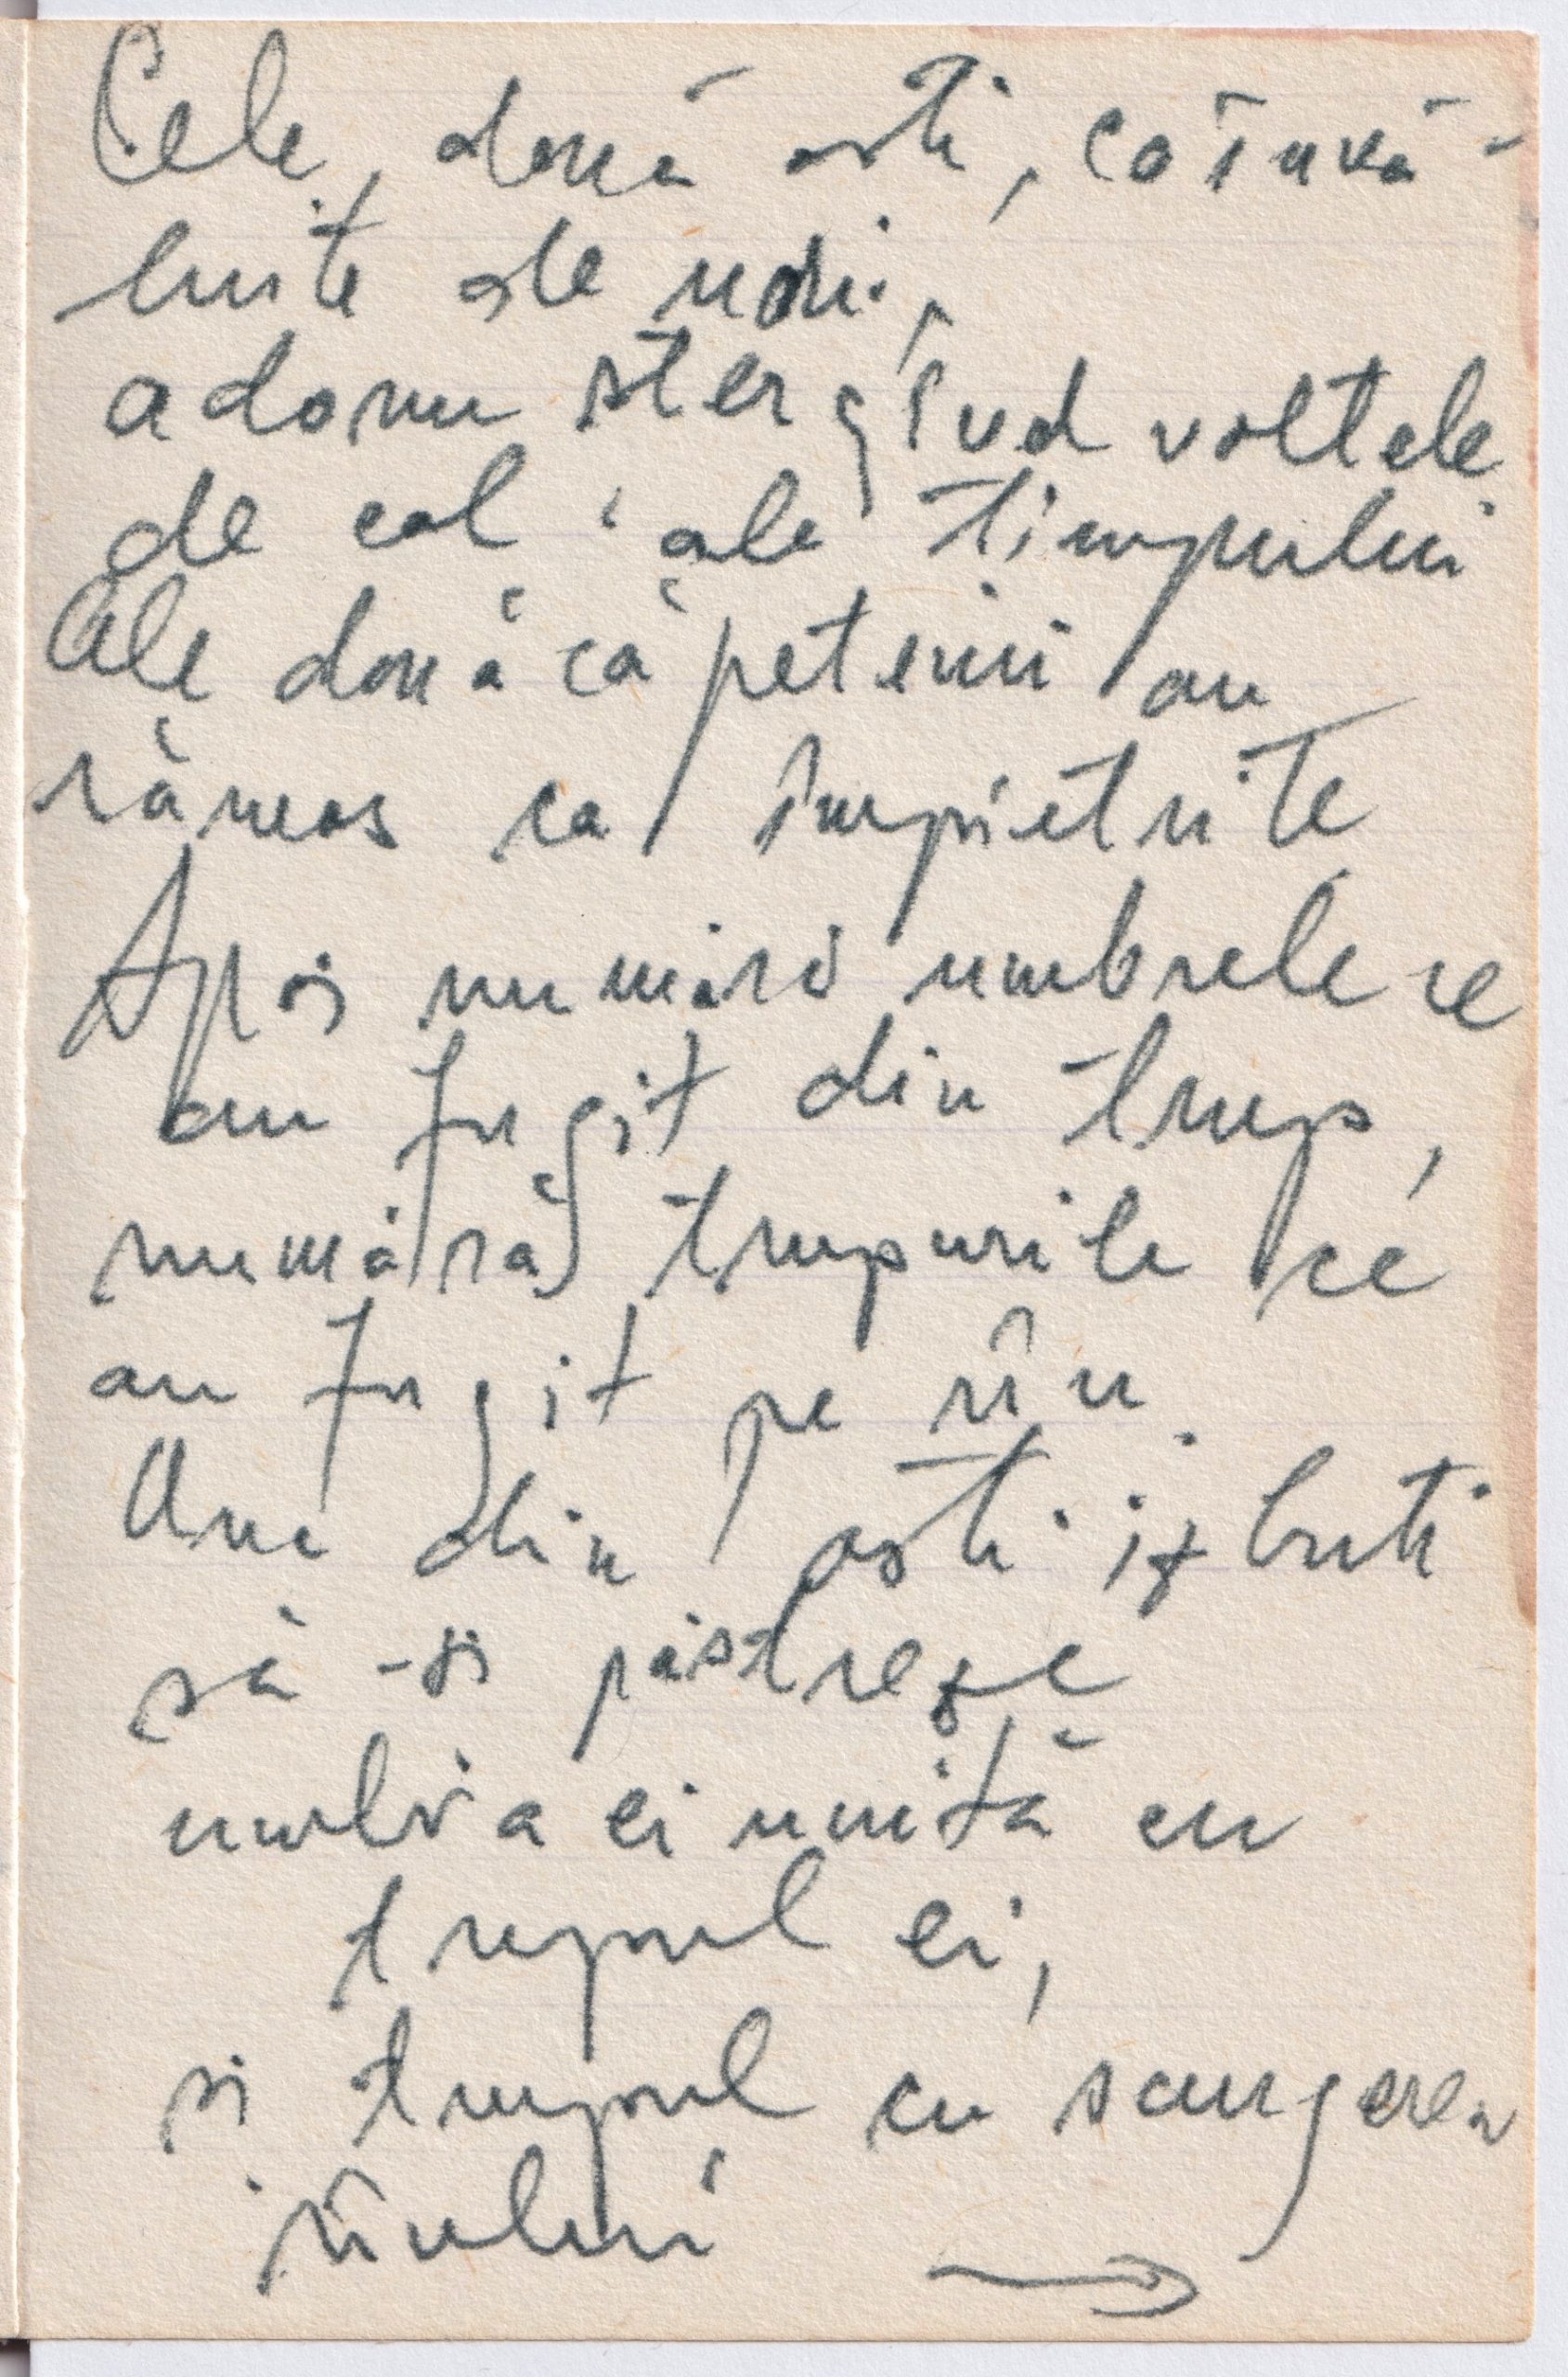 Cele două osti, ca învă-
luite de udri,
adorm stergînd voltele
de cal ale timpului
Cele două căpetenii au
rămas ca împietrite
Apoi numără umbrele ce
au fugit din trup,
numără trupurile ce
au fugit pe rîu.
Una din osti izbuti
să-si păstreze
umbra ei unită cu
trupul ei,
si trupul cu sangerea
rîului